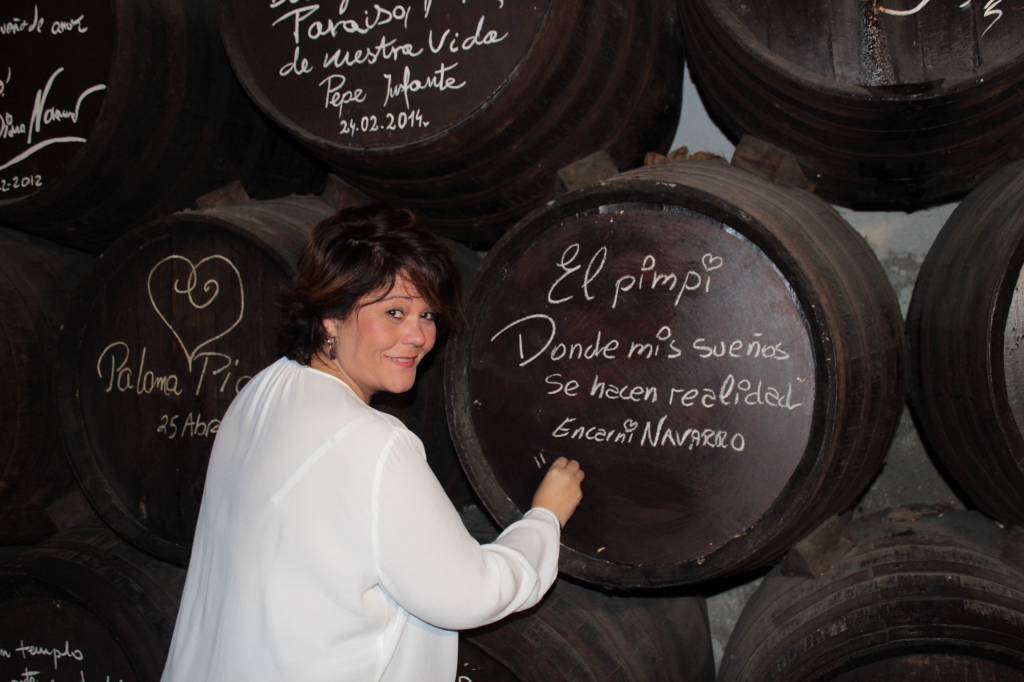 de amor
2-2012
Paraiso,
de nuestra Vida
Pepe Infante
24.02.2014.
Paloma
25
El pimpi
Donde mis sueños
se hacen realidad
Encarni NAVARRO
11
templo